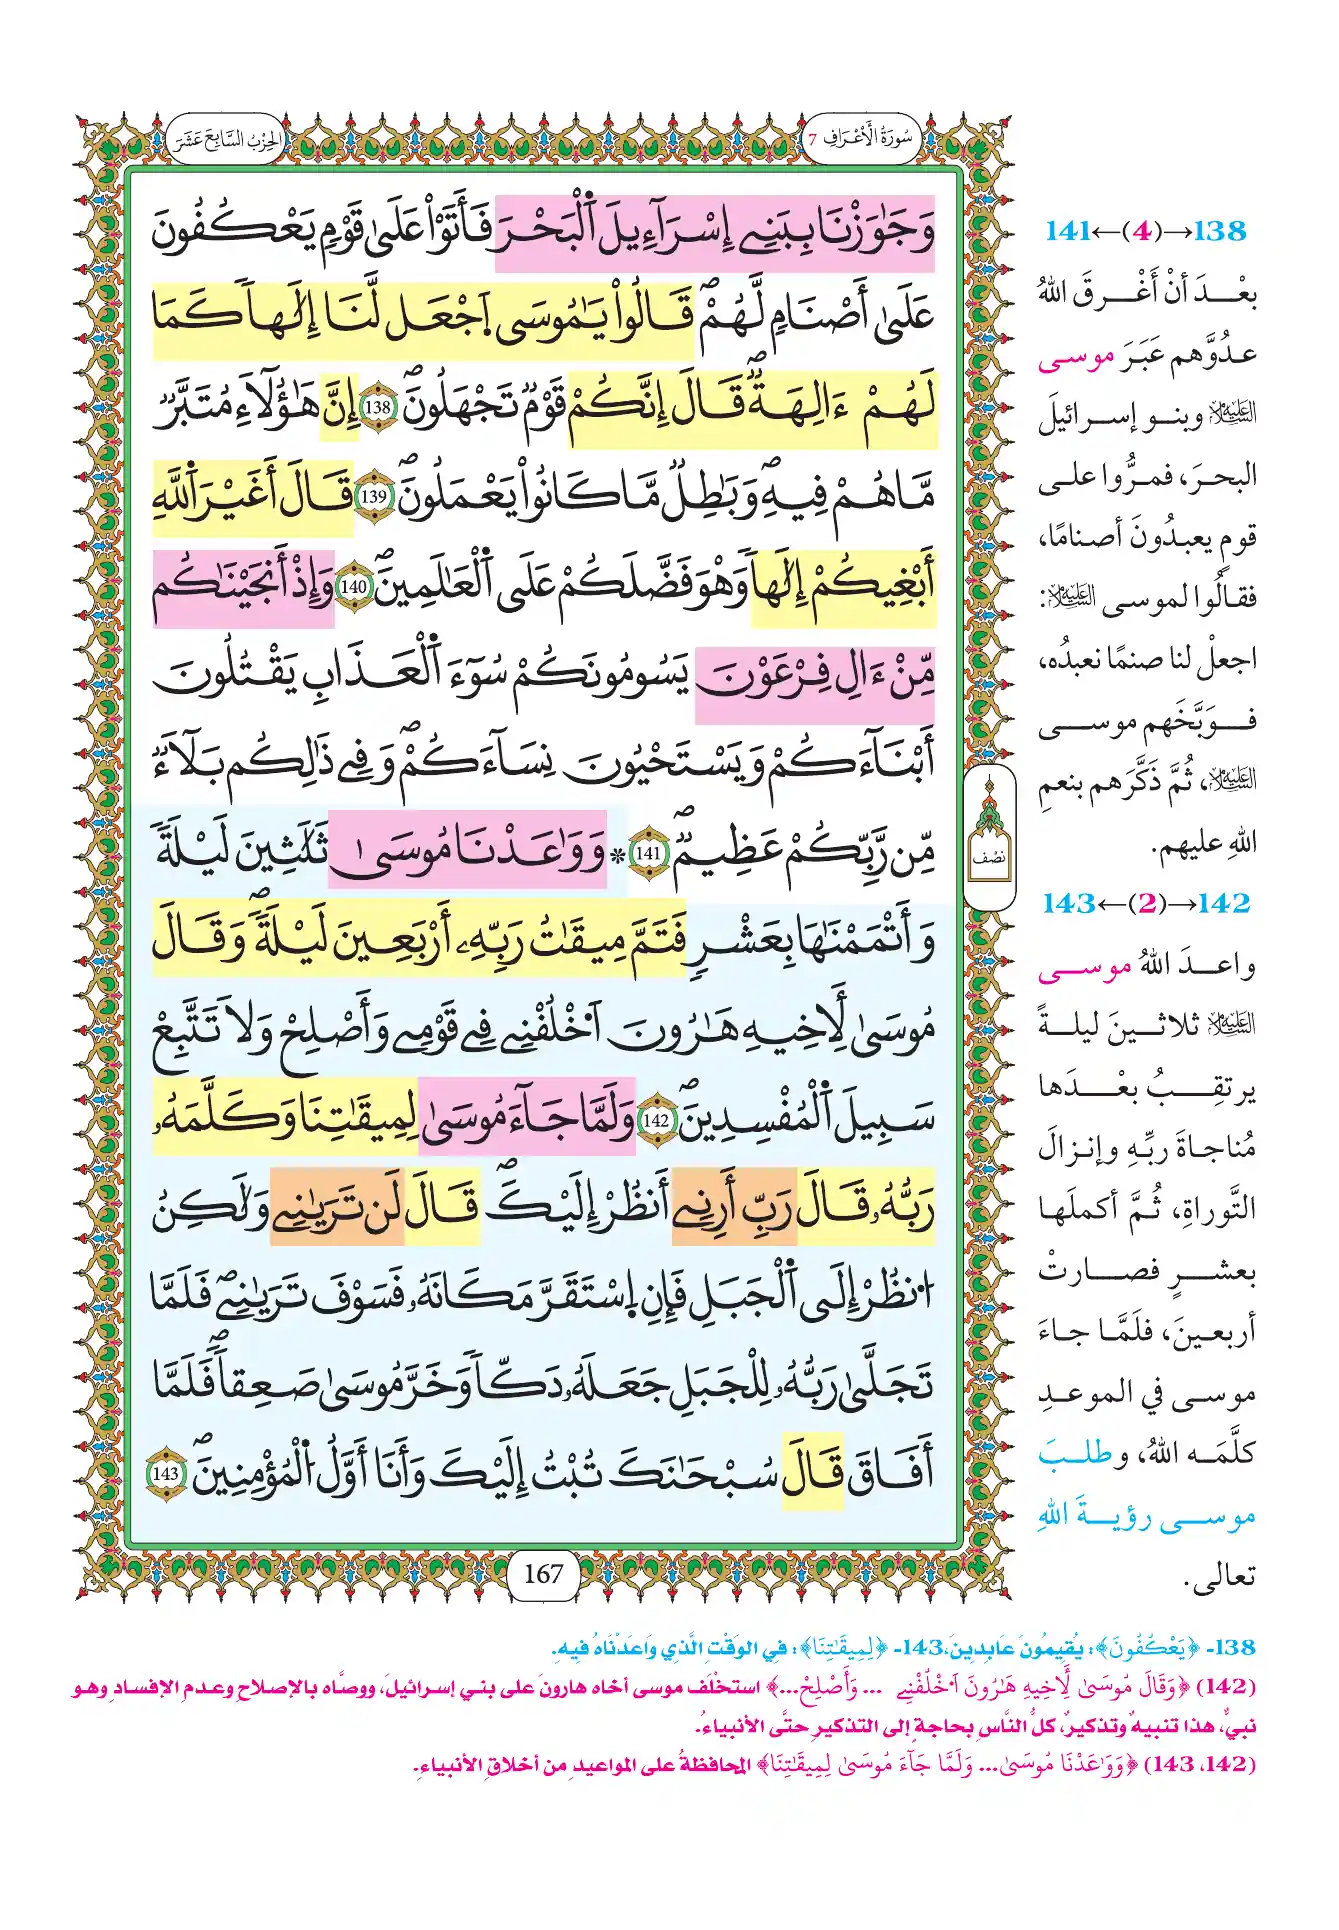 سُورَةُ الْأَعْرَافِ 7
الحِزْبُ السَّابِعَ عَشَرَ
وَجَٰوَزْنَا بِبَنِےٓ إِسْرَآءِيلَ اَ۬لْبَحْرَ فَأَتَوْاْ عَلَىٰ قَوْمٖ يَعْكُفُونَ
عَلَىٰٓ أَصْنَامٖ لَّهُمْۖ قَالُواْ يَٰمُوسَى اَ۪جْعَل لَّنَآ إِلَٰهاٗ كَمَا
لَهُمْ ءَالِهَةٞۖ قَالَ إِنَّكُمْ قَوْمٞ تَجْهَلُونَۖ 138 إِنَّ هَٰٓؤُلَآءِ مُتَبَّرٞ
مَّا هُمْ فِيهِۖ وَبَٰطِلٞ مَّا كَانُواْ يَعْمَلُونَۖ 139 قَالَ أَغَيْرَ اَ۬للَّهِ
أَبْغِيكُمْ إِلَٰهاٗ وَهُوَ فَضَّلَكُمْ عَلَى اَ۬لْعَٰلَمِينَۖ 140 وَإِذْ أَنجَيْنَٰكُم
مِّنْ ءَالِ فِرْعَوْنَ يَسُومُونَكُمْ سُوٓءَ اَ۬لْعَذَابِ يَقْتُلُونَ
أَبْنَآءَكُمْ وَيَسْتَحْيُونَ نِسَآءَكُمْۖ وَفِے ذَٰلِكُم بَلَآءٞ
مِّن رَّبِّكُمْ عَظِيمٞۖ 141 * وَوَٰعَدْنَا مُوسَىٰ ثَلَٰثِينَ لَيْلَةٗ
وَأَتْمَمْنَٰهَا بِعَشْرٖ فَتَمَّ مِيقَٰتُ رَبِّهِۦٓ أَرْبَعِينَ لَيْلَةٗۖ وَقَالَ
مُوسَىٰ لِأَخِيهِ هَٰرُونَ اَ۟خْلُفْنِے فِے قَوْمِے وَأَصْلِحْ وَلَا تَتَّبِعْ
سَبِيلَ اَ۬لْمُفْسِدِينَۖ 142 وَلَمَّا جَآءَ مُوسَىٰ لِمِيقَٰتِنَا وَكَلَّمَهُۥ
رَبُّهُۥ قَالَ رَبِّ أَرِنِےٓ أَنظُرْ إِلَيْكَۖ قَالَ لَن تَرَىٰنِے وَلَٰكِنُ
اُ۟نظُرْ إِلَى اَ۬لْجَبَلِ فَإِنِ اِ۪سْتَقَرَّ مَكَانَهُۥ فَسَوْفَ تَرَىٰنِےۖ فَلَمَّا
تَجَلَّىٰ رَبُّهُۥ لِلْجَبَلِ جَعَلَهُۥ دَكّاٗ وَخَرَّ مُوسَىٰ صَعِقاٗۖ فَلَمَّآ
أَفَاقَ قَالَ سُبْحَٰنَكَ تُبْتُ إِلَيْكَ وَأَنَآ أَوَّلُ اُ۬لْمُؤْمِنِينَۖ 143
نصف
167
138→(4)←141
بعْدَ أنْ أَغْرقَ اللهُ
عدُوَّهم عَبَرَ موسى
عليه السلام وبنو إسرائيلَ
البحرَ، فمرُّوا على
قومٍ يعبدُونَ أصنامًا،
فقالُوا لموسى عليه السلام:
اجعلْ لنا صنمًا نعبدُه،
فوَبَّخَهم موسى
عليه السلام، ثُمَّ ذَكَّرَهم بنعمِ
اللهِ عليهم.
142→(2)←143
واعدَ اللهُ موسى
عليه السلام ثلاثينَ ليلةً
يرتقِبُ بعْدَها
مُناجاةَ ربِّهِ وإنزالَ
التَّوراةِ، ثُمَّ أكملَها
بعشرٍ فصارتْ
أربعينَ، فلَمَّا جاءَ
موسى في الموعدِ
كلَّمَه اللهُ، وطلبَ
موسى رؤيةَ اللهِ
تعالى.
138- ﴿يَعْكُفُونَ﴾: يُقيمُونَ عَابِدِينَ، 143- ﴿لِمِيقَٰتِنَا﴾: فِي الوَقْتِ الَّذِي وَاعَدْنَاهُ فِيهِ.
(142) ﴿وَقَالَ مُوسَىٰ لِأَخِيهِ هَٰرُونَ اَ۟خْلُفْنِے ... وَأَصْلِحْ...﴾ استخْلَف موسى أخاه هارونَ على بني إسرائيلَ، ووصَّاه بالإصلاح وعدم الإفسادِ وهو
نبيٌّ، هذا تنبيهٌ وتذكيرٌ، كلُّ النَّاسِ بحاجةٍ إلى التذكيرِ حتَّى الأنبياءُ.
(142، 143) ﴿وَوَٰعَدْنَا مُوسَىٰ... وَلَمَّا جَآءَ مُوسَىٰ لِمِيقَٰتِنَا﴾ المحافظةُ على المواعيدِ من أخلاقِ الأنبياءِ.